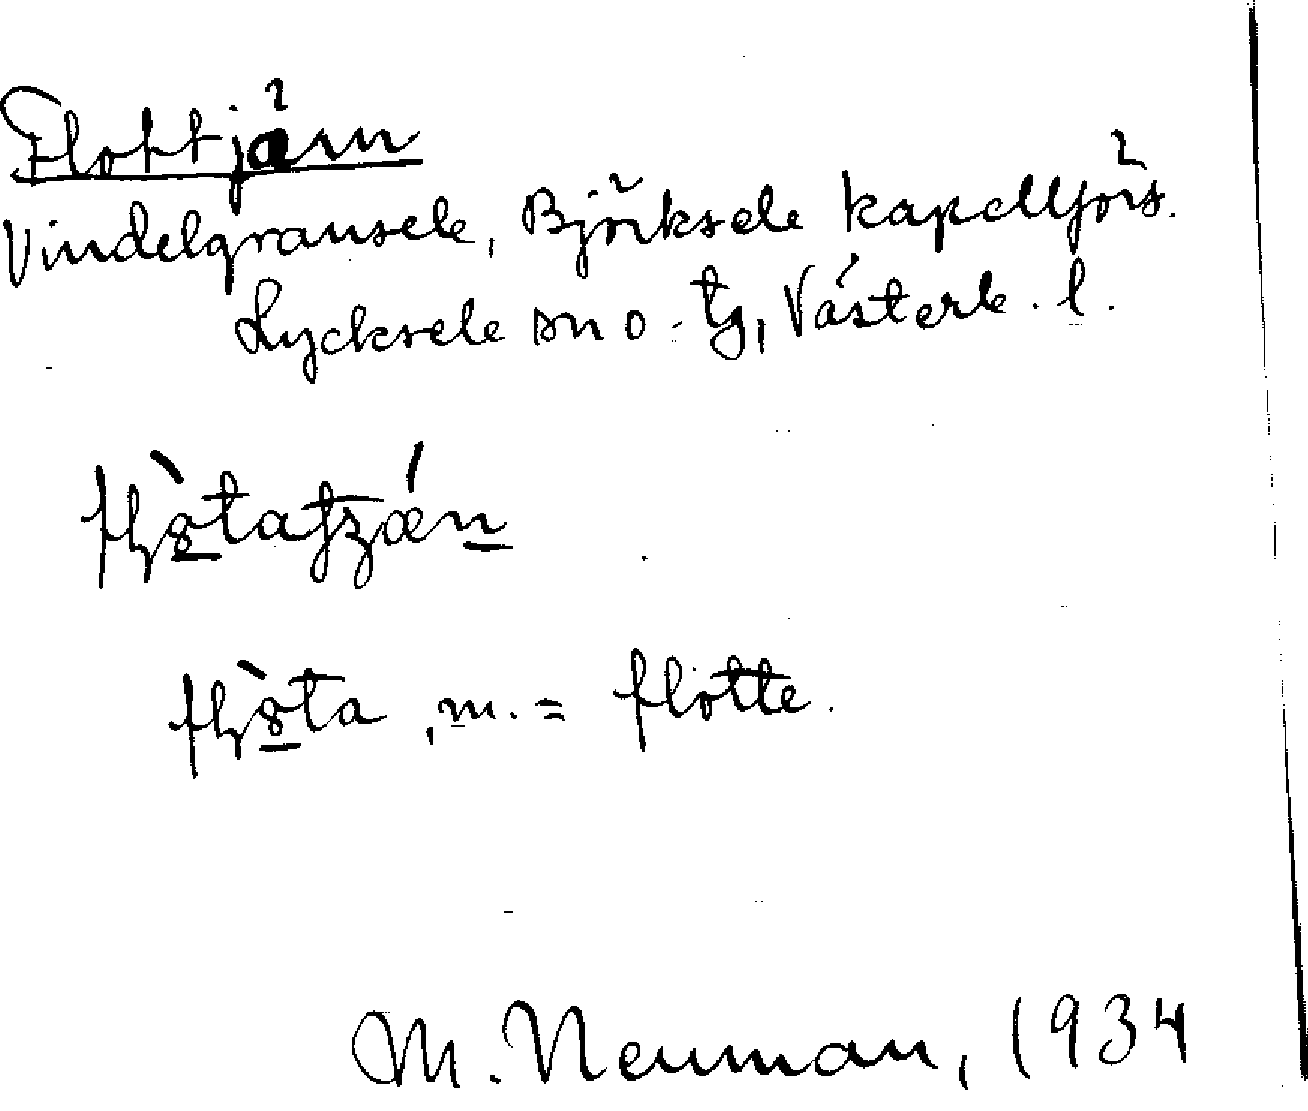 Flottjärn
Vindelgransele, Björksele kapellförs.
Lycksele sn o. tg, Västerb. l.
, m. = flotte.
M. Neuman, 1934